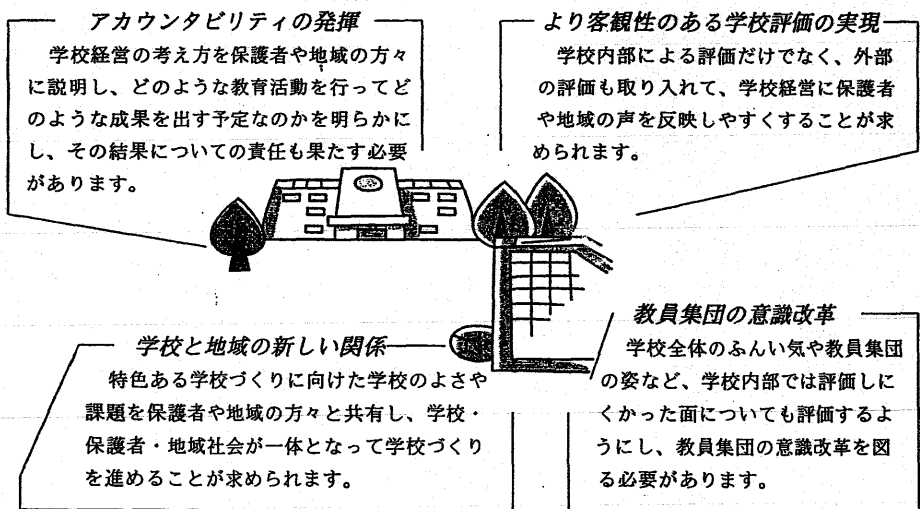 アカウンタビリティの発揮
学校経営の考え方を保護者や地域の方々
に説明し、どのような教育活動を行ってど
のような成果を出す予定なのかを明らかに
し、その結果についての責任も果たす必要
があります。
より客観性のある学校評価の実現
学校内部による評価だけでなく、外部
の評価も取り入れて、学校経営に保護者
や地域の声を反映しやすくすることが求
められます。
学校と地域の新しい関係
特色ある学校づくりに向けた学校のよさや
課題を保護者や地域の方々と共有し、学校・
保護者・地域社会が一体となって学校づくり
を進めることが求められます。
教員集団の意識改革
学校全体のふんい気や教員集団
の姿など、学校内部では評価しに
くかった面についても評価するよ
うにし、教員集団の意識改革を図
る必要があります。